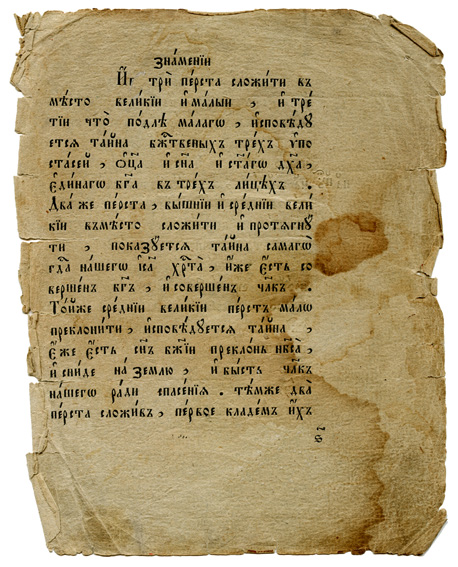 зна́менїи
И҆ трѝ пе́рста сложи́ти въ
мѣ́сто вели́кїи и҆ ма́лыи , и҆ тре́
тїи что̀ по́длѣ ма́лагѡ , и҆сповѣ́дꙋ
ется та́йна бж҃твеныхъ тре́хъ ѵ҆по
ста́сей , ѻ҆ц҃а и҆ сн҃а , и҆ ст҃а́гѡ дх҃а ,
є҆ди́нагѡ бг҃а въ тре́хъ ли́цѣхъ .
Два́ же пе́рста , вы́шнїи и҆ сре́днїи вели́
кїи въмѣ́сто сложи́ти и҆ протягнꙋ́
ти , показꙋ́ется та́йна самагѡ
гд҃а на́шегѡ і҆с҃а хр҃та̀ , и҆́же є҆́сть со
верше́нъ бг҃ъ , и҆ соверше́нъ чл҃къ .
То́йже сре́днїи вели́кїи пе́рстъ ма́лѡ
преклони́ти , и҆сповѣ́дꙋется та́йна ,
є҆́же є҆́сть сн҃ъ бж҃їи прекло́нь нб҃са̀ ,
и҆ сни́де на́ землю , и҆ бы́сть чл҃къ
на́шегѡ ра́ди спасе́нїя . тѣ́мже два̀
пе́рста сложи́въ , пе́рвое кладе́мъ и҆́хъ